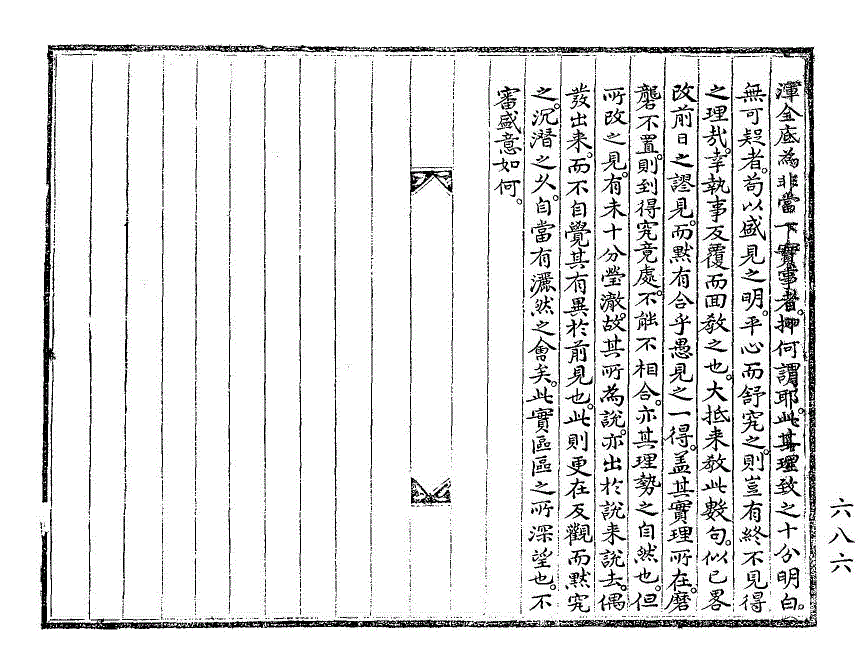 渾金底為非當下實事者。抑何謂耶。此其理致之十分明白。
無可疑者。苟以盛見之明。平心而舒究之。則豈有終不見得
之理哉。幸執事反覆而回敎之也。大抵来敎此數句。似已畧
改前日之謬見。而黙有合乎愚見之一得。盖其實理所在。磨
礱不置。則到得究竟處。不能不相合。亦其理勢之自然也。但
所改之見。有未十分瑩澈。故其所為說。亦出於說来說去。偶
發出来。而不自覺其有異於前見也。此則更在反觀而黙究
之。沉潛之久。自當有灑然之會矣。此實區區之所深望也。不
審盛意如何。
六八六